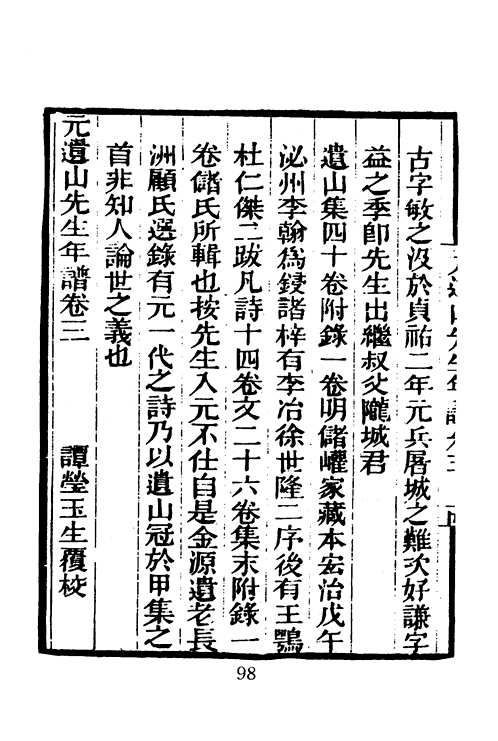 古字敏之沒於貞祐二年元兵屠城之難次好謙字
益之季卽先生出繼叔父隴城君
遺山集四十卷附錄一卷明儲巏家藏本宏治戊午
泌州李翰爲鋟諸梓有李冶徐世隆二序後有王鶚
杜仁傑二跋凡詩十四卷文二十六卷集末附錄一
卷儲氏所輯也按先生入元不仕自是金源遺老長
洲顧氏選錄有元一代之詩乃以遺山冠於甲集之
首非知人論世之義也
元遺山先生年譜卷三
譚瑩玉生覆校
98